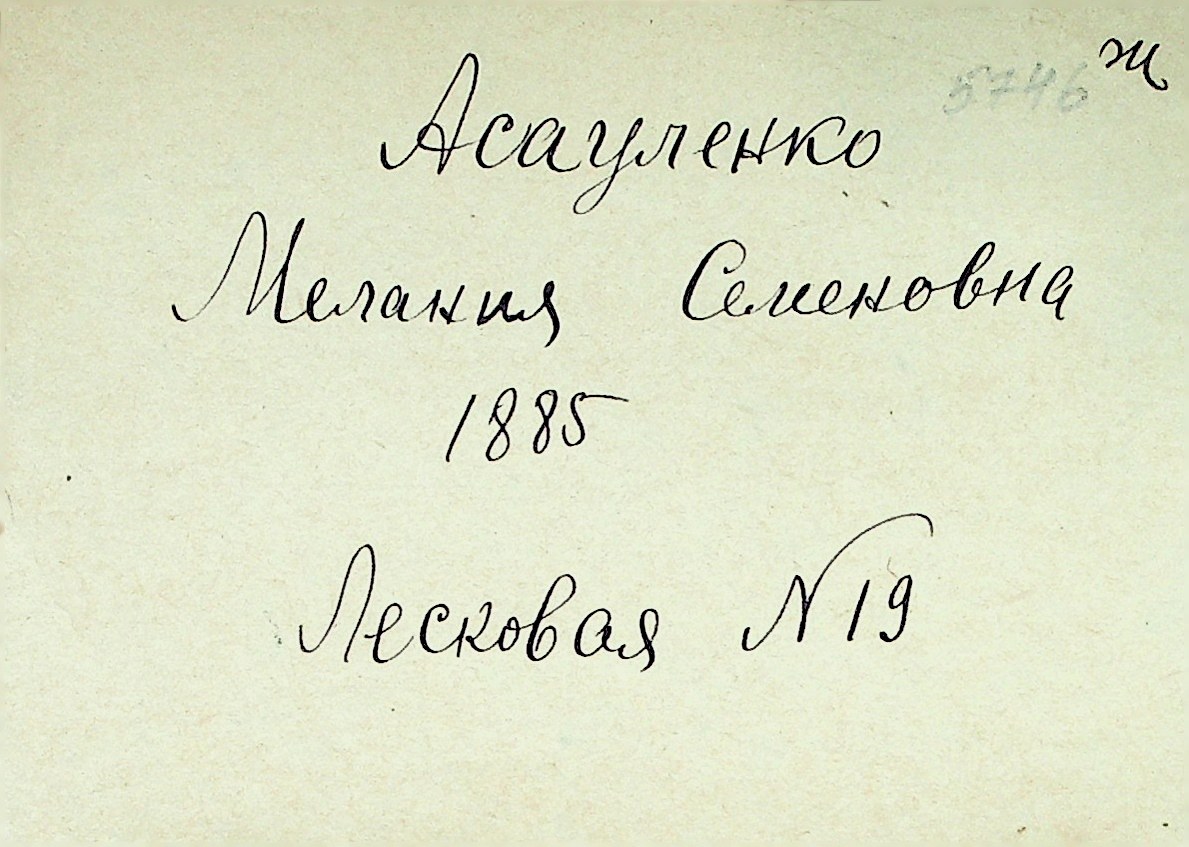 5746 ж
Асауленко
Мелания Семеновна
1885
Лесковая N 19